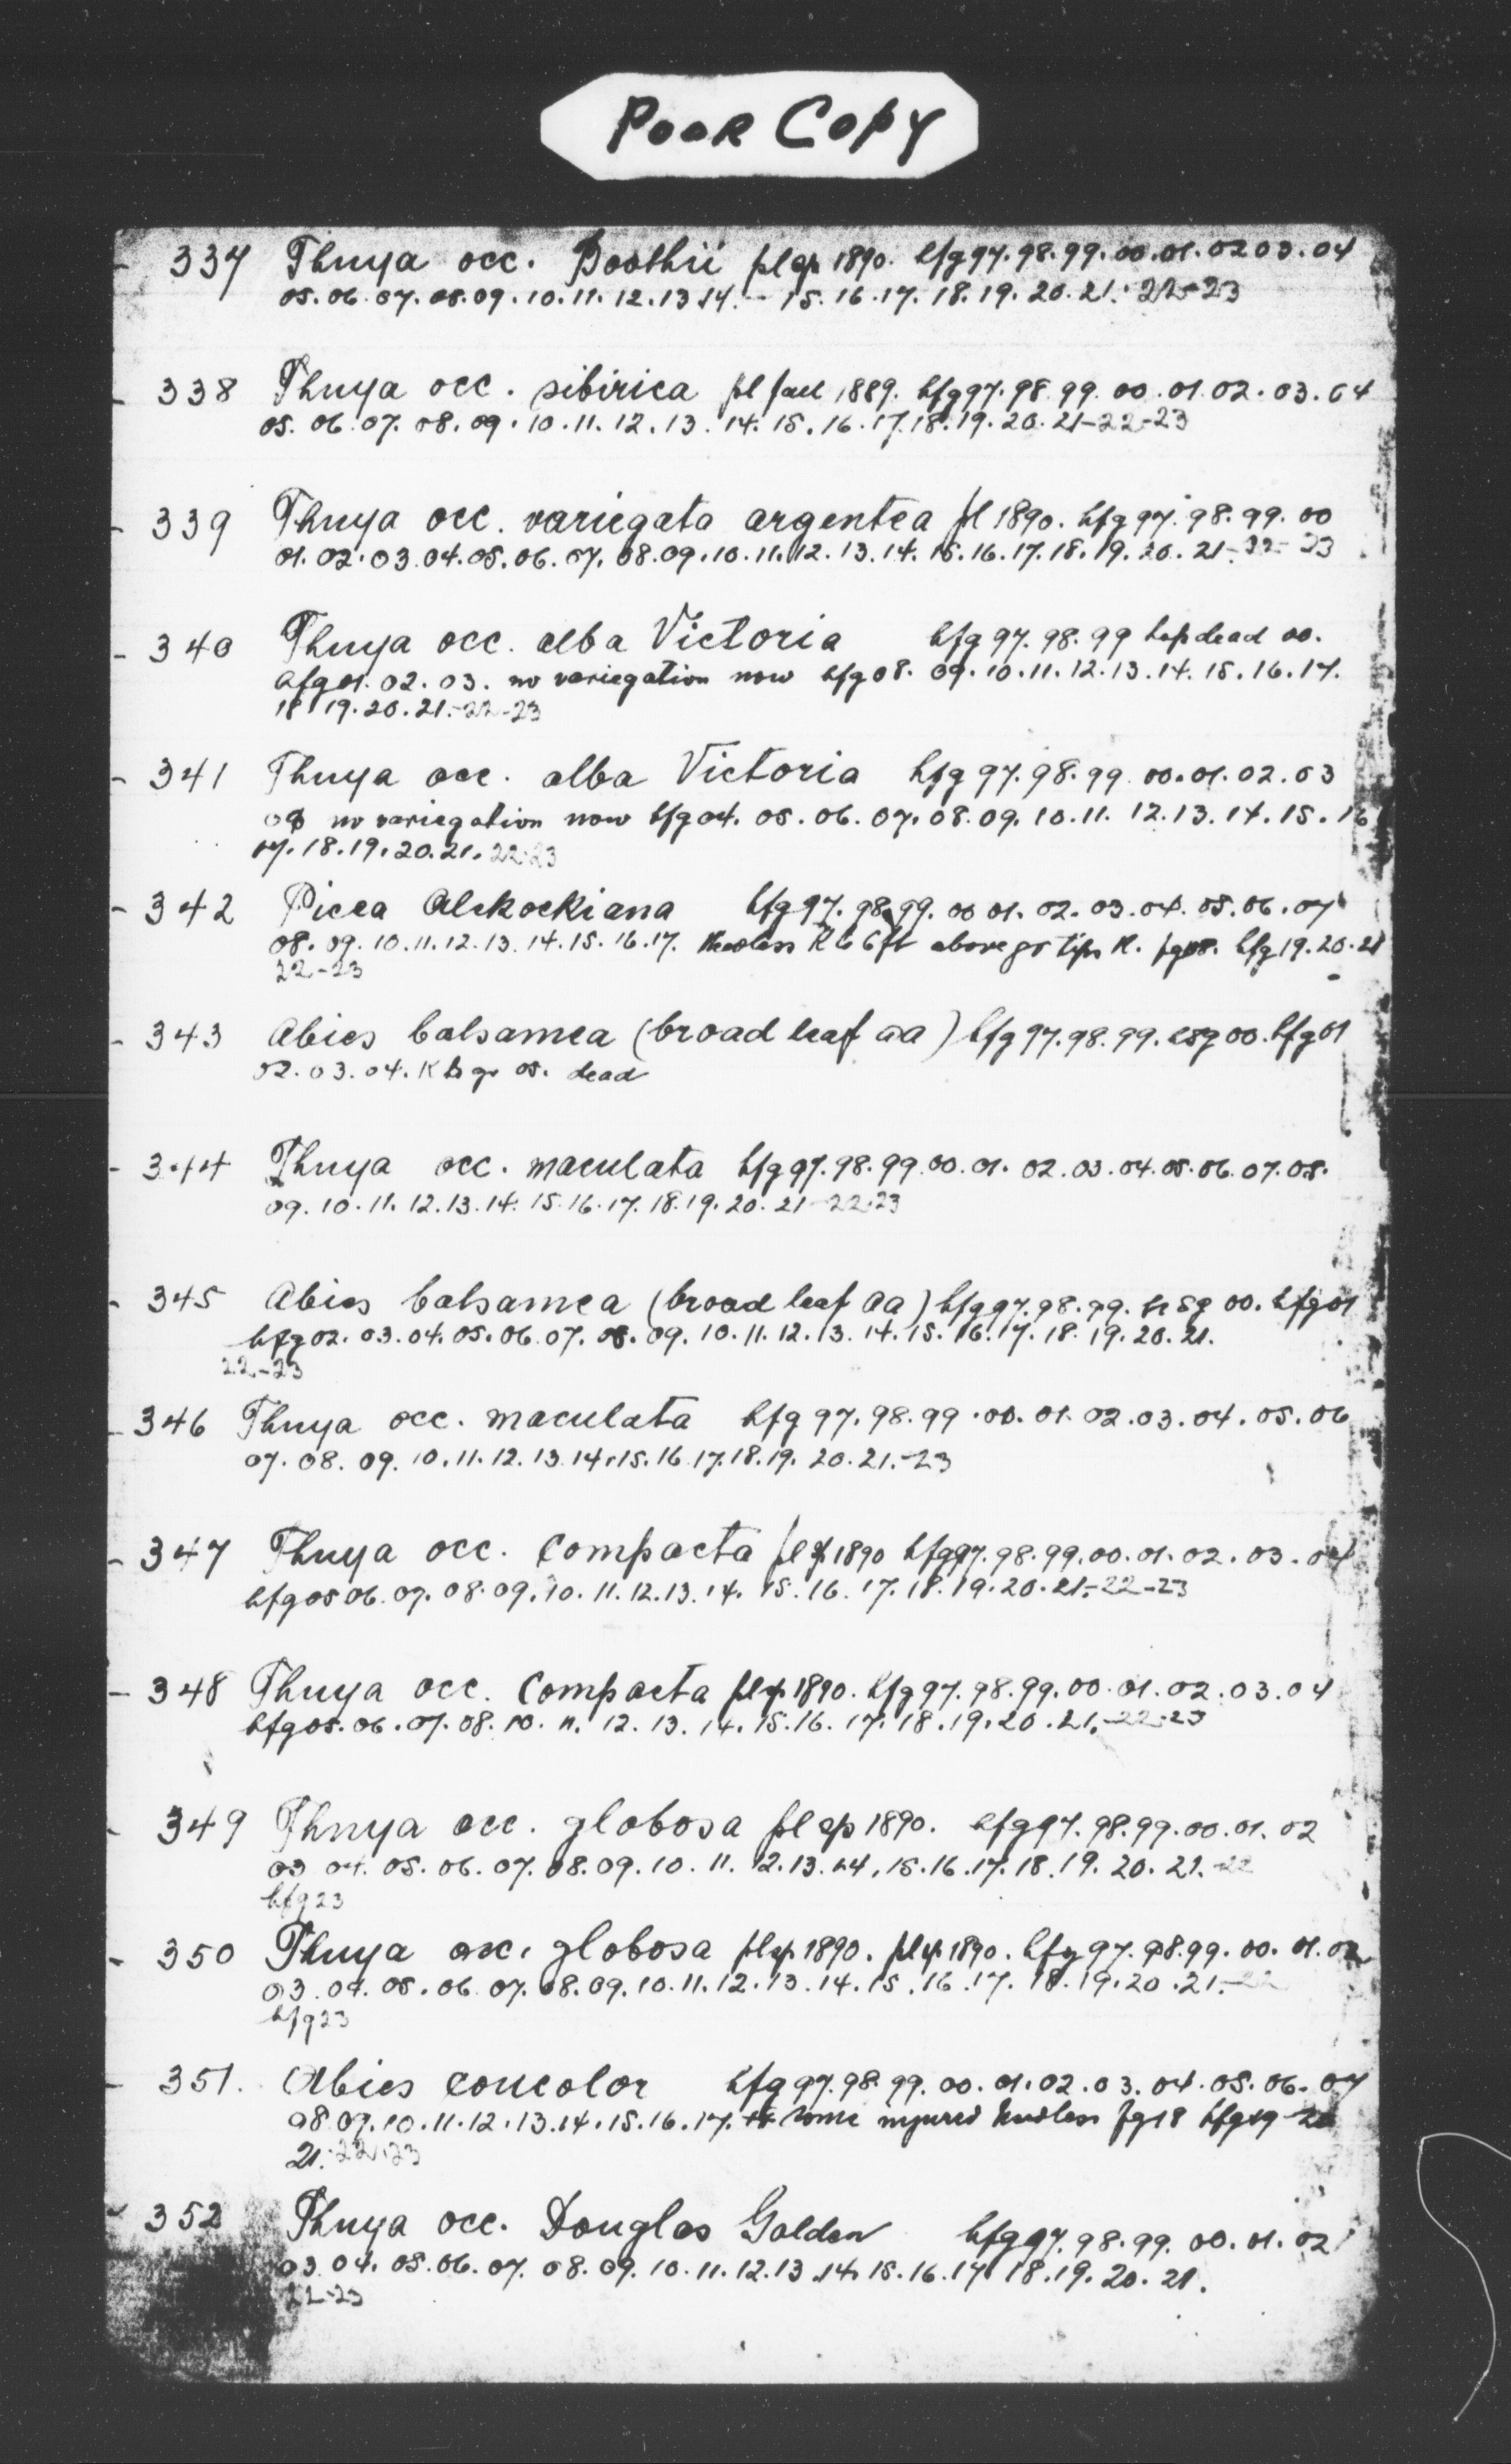 POOR COPY
- 337 Thuya occ. Boothii pl sp 1890. hfg 97. 98. 99. 00. 01. 02 03. 04
05. 06. 07. 08. 09. 10. 11. 12. 13 14. - 15. 16. 17. 18. 19. 20. 21. 22-23
- 338 Thuya occ. sibirica pl fall 1889. hfg 97. 98. 99. 00. 01. 02. 03. 04
05. 06. 07. 08. 09. 10. 11. 12. 13. 14. 15. 16. 17. 18. 19. 20. 21-22-23
- 339 Thuya occ. variegata argentea pl 1890. hfg 97. 98. 99. 00
01. 02. 03. 04. 05. 06. 07. 08. 09. 10. 11. 12. 13. 14. 15. 16. 17. 18. 19. 20. 21-22-23
- 340 Thuya occ. alba Victoria hfg 97. 98. 99 top dead 00.
hfg 01. 02. 03. no variegation now hfg 08. 09. 10. 11. 12. 13. 14. 15. 16. 17.
18 19. 20. 21.-22-23
- 341 Thuya occ. alba Victoria hfg 97. 98. 99. 00. 01. 02. 03
no variegation now hfg 04. 05. 06. 07. 08. 09. 10. 11. 12. 13. 14. 15. 16
17. 18. 19. 20. 21. 22-23
- 342 Picea Alckockiana hfg 97. 98. 99. 00 01. 02. 03. 04. 05. 06. 07
08. 09. 10. 11. 12. 13. 14. 15. 16. 17. K to 6 ft above gr tips K. fg 18. hfg 19. 20. 21
22-23
- 343 Abies balsamea (broad leaf aa) hfg 97. 98. 99. hsg 00. hfg 01
02. 03. 04. K to gr 05. dead
- 344 Thuya occ. maculata hfg 97. 98. 99. 00. 01. 02. 03. 04. 05. 06. 07. 08.
09. 10. 11. 12. 13. 14. 15. 16. 17. 18. 19. 20. 21-22-23
- 345 Abies balsamea (broad leaf aa) hfg 97. 98. 99. hsg 00. hfg 01
hfg 02. 03. 04. 05. 06. 07. 08. 09. 10. 11. 12. 13. 14. 15. 16. 17. 18. 19. 20. 21.
22-23
- 346 Thuya occ. maculata hfg 97. 98. 99. 00. 01. 02. 03. 04. 05. 06
07. 08. 09. 10. 11. 12. 13. 14. 15. 16 17. 18. 19. 20. 21.-23
- 347 Thuya occ. compacta pl sp 1890 hfg 97. 98. 99. 00. 01. 02. 03. 04
hfg 05 06. 07. 08. 09. 10. 11. 12. 13. 14. 15. 16. 17. 18. 19. 20. 21.-22-23
- 348 Thuya occ. compacta pl sp 1890. hfg 97. 98. 99. 00. 01. 02. 03. 04
hfg 05. 06. 07. 08. 10. 11. 12. 13. 14. 15. 16. 17. 18. 19. 20. 21.-22-23
349 Thuya occ. globosa pl sp 1890. hfg 97. 98. 99. 00. 01. 02
03 04. 05. 06. 07. 08. 09. 10. 11. 12. 13. 14. 15. 16. 17. 18. 19. 20. 21.-22
hfg 23
- 350 Thuya occ. globosa pl sp 1890. pl sp 1890. hfg 97. 98. 99. 00. 01. 02
03. 04. 05. 06. 07. 08. 09. 10. 11. 12. 13. 14. 15. 16. 17. 18. 19. 20. 21.-22
hfg 23
- 351. Abies concolor hfg 97. 98. 99. 00. 01. 02. 03. 04. 05. 06. 07
08. 09. 10. 11. 12. 13. 14. 15. 16. 17. some injured fg 18 hfg 19 20
21. 22. 23
- 352 Thuya occ. Douglas Golden hfg 97. 98. 99. 00. 01. 02
03. 04. 05. 06. 07. 08. 09. 10. 11. 12. 13. 14. 15. 16. 17 18. 19. 20. 21.
22-23